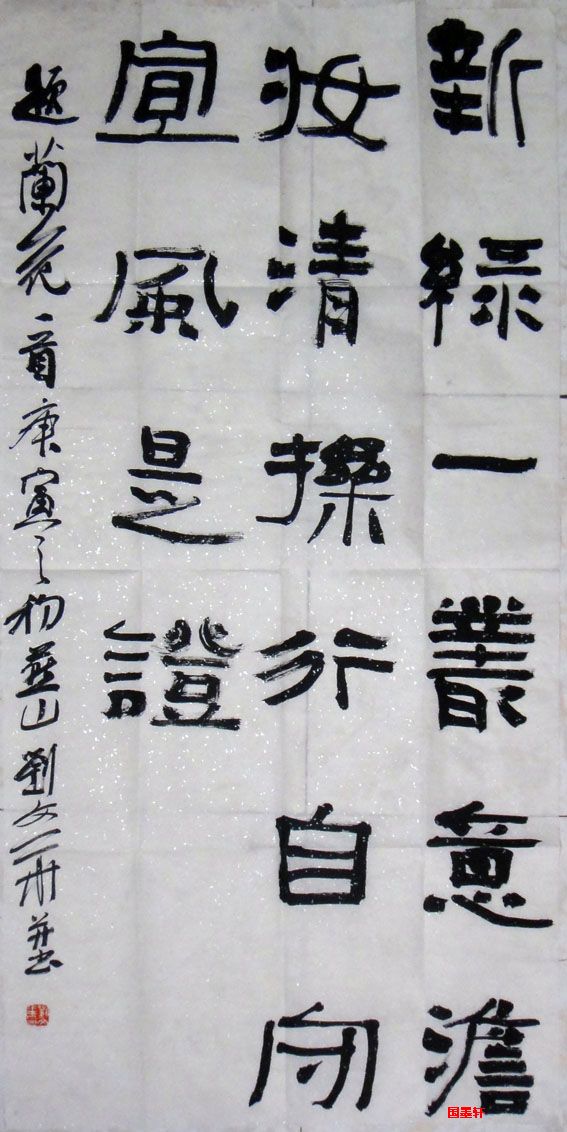 新綠一叢意澹
妝清操行自
宣風是證
題蘭花一首庚寅之初燕山劉文并書
国墨轩